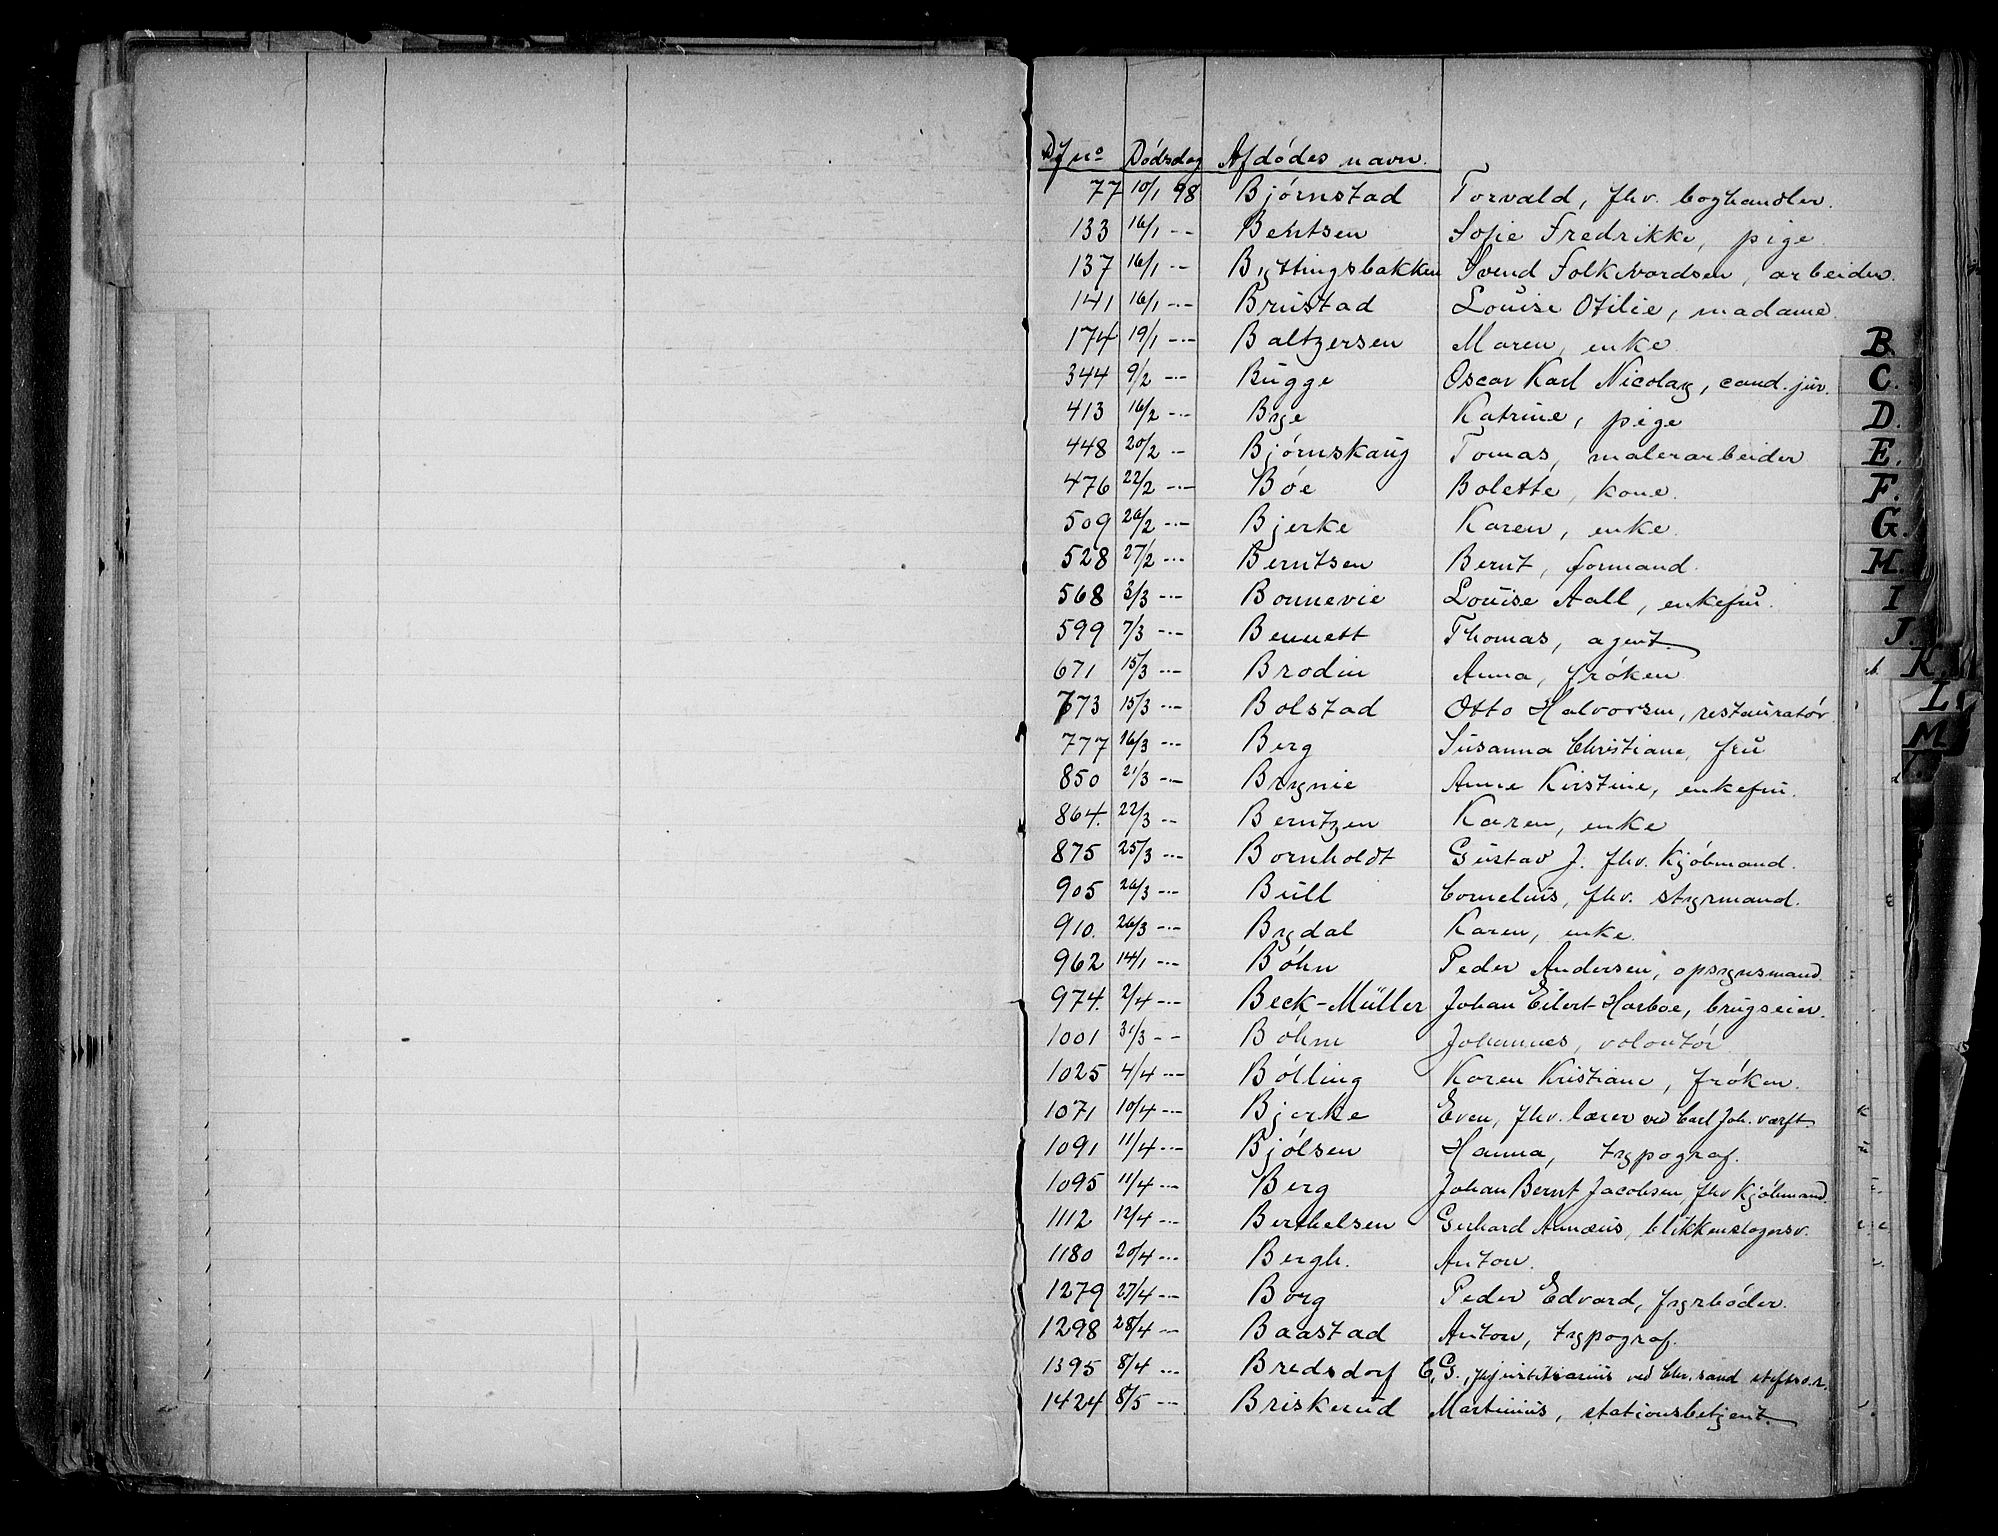 Df no Dødsdag Afdødes navn.
77 10/1 98 Bjørnstad Torvald, fhv. boghandler.
133 16/1 -- Berntsen Sofie Fredrikke, pige
137 16/1 -- Byttingsbakken Svend Folkvardsen, arbeider.
141 16/1 -- Brustad Louise Otilie, madame
174 19/1 -- Baltzersen Maren, enke
344 9/2 -- Bugge Oscar Karl Nicolay, cand. jur.
413 16/2 -- Bye Katrine, pige
448 20/2 -- Bjørnskaug Tomas, malerarbeider
476 22/2 -- Bøe Bolette, kone.
509 26/2 -- Bjerke Karen, enke.
528 27/2 -- Berntsen Bernt, formand.
568 3/3 -- Bonnevie Louise Aall, enkefru.
599 7/3 -- Bennett Thomas, agent.
671 15/3 -- Brodin Anna, frøken
773 15/3 -- Bolstad Otto Halvorsen, restauratør
777 16/3 -- Berg Susanna Christiane, fru
850 21/3 -- Brynie Anne Kirstine, enkefru.
864. 22/3 -- Berntzen Karen, enke
875 25/3 -- Bornholdt Gustav J. fhv. Kjøbmand.
905 26/3 -- Bull Cornelius, fhv. styrmand.
910. 26/3 -- Bydal Karen, enke.
962 14/1 -- Bøhn Peder Andersen, opsynsmand.
974. 2/4 -- Beck-Müller Johan Eilert Harboe, brugseier.
1001 31/3 -- Bøhm Johannes, volontør
1025 4/4 -- Bølling Karen Kristiane, frøken.
1071 10/4 -- Bjerke Even, fhv. lærer ved Carl Joh. værft.
1091 11/4 -- Bjølsen Hanna, typograf.
1095 11/4 -- Berg Johan Bernt Jacobsen, fhv Kjøbmand.
1112 12/4 -- Berthelsen Gerhard Annæus, blikkenslagersv.
1180 20/4 -- Bergh. Anton.
1279 27/4 -- Borg Peder Edvard, fyrbøder.
1298 28/4 -- Baastad Anton, typograf.
1395 8/4 -- Bredsdorf C. G., justitiarius ved Chr.sand stiftso.r.
1424 8/5 -- Briskerud Martinius, stationsbetjent.
B.
C.
D.
E.
F.
G.
H.
I
J.
K.
L
M